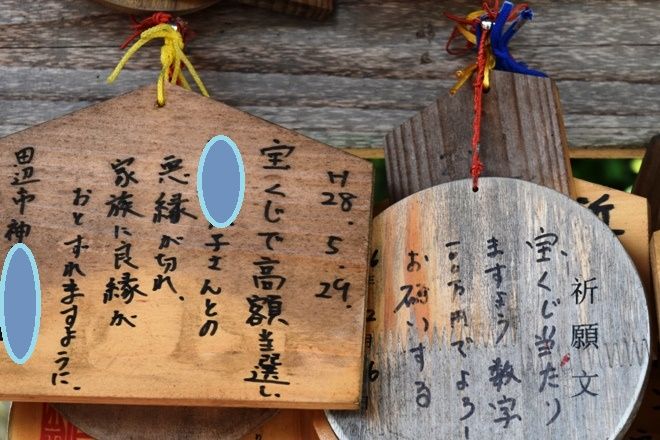 H28.5.29.
宝くじで高額当選し
子さんとの
悪縁が切れ、
家族に良縁が
おとずれますように、
田辺市神
祈願文
宝くじ当たり
ますよう数字
百万円でよろし
お願いする